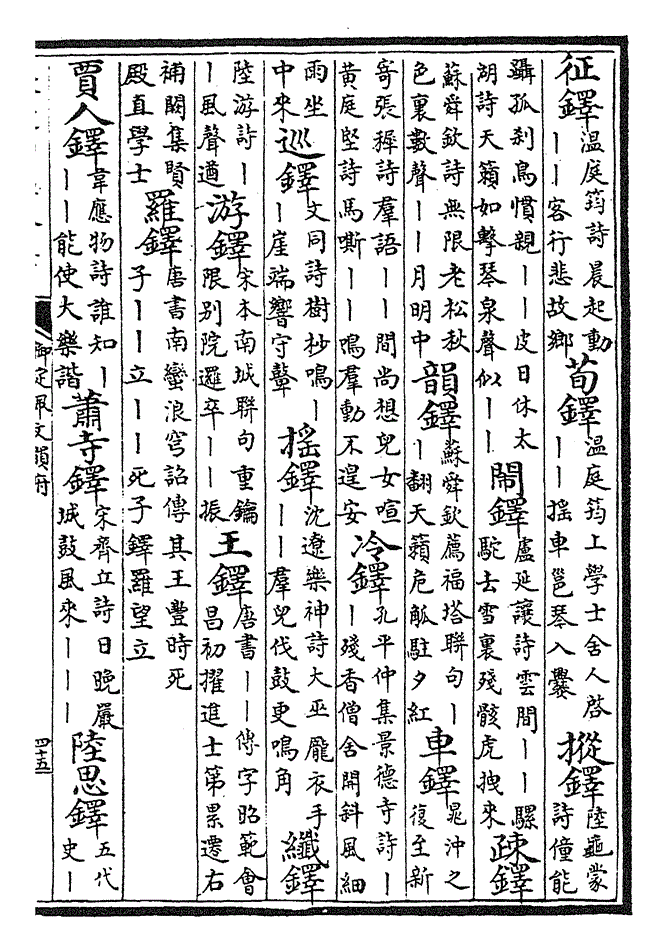 征鐸溫庭筠詩晨起動｜｜客行悲故鄉 荀鐸溫庭筠上學士舍人啓｜｜揺車邕琴入爨 摐鐸陸龜蒙詩僮能
躡孤刹鳥慣親｜｜皮日休太湖詩天籟如擊琴泉聲似｜｜ 閙鐸盧延讓詩雲間｜｜騾駝去雪裏殘骸虎拽來 疎鐸
蘇舜欽詩無限老松秋色裏數聲｜｜月明中 韻鐸蘇舜欽薦福塔聯句｜｜翻天籟危觚駐夕紅 車鐸晁沖之復至新
寄張犀詩羣語｜｜間尚想兒女喧黄庭堅詩馬嘶｜｜鳴羣動不遑安 冷鐸孔平仲集景德寺詩｜｜殘香僧舍開斜風細
雨坐中來 巡鐸文同詩樹杪鳴｜｜崖端響守鼛 揺鐸沈遼樂神詩大巫龎衣手｜｜羣兒伐鼓更鳴角 纖鐸
陸游詩｜｜風聲遒 游鐸宋本南城聯句重鑰限别院邏卒｜｜振 王鐸唐書｜｜傳字昭範會昌初擢進士第累遷右
補闕集賢殿直學士 羅鐸唐書南蠻浪穹詔傳其王豐時死子｜｜立｜｜死子鐸羅望立
賈人鐸韋應物詩誰知｜｜｜能使大樂諧 蕭寺鐸宋齊丘詩日晚嚴城鼓風來｜｜｜ 陸思鐸五代史｜
御定佩文韻府
四十五